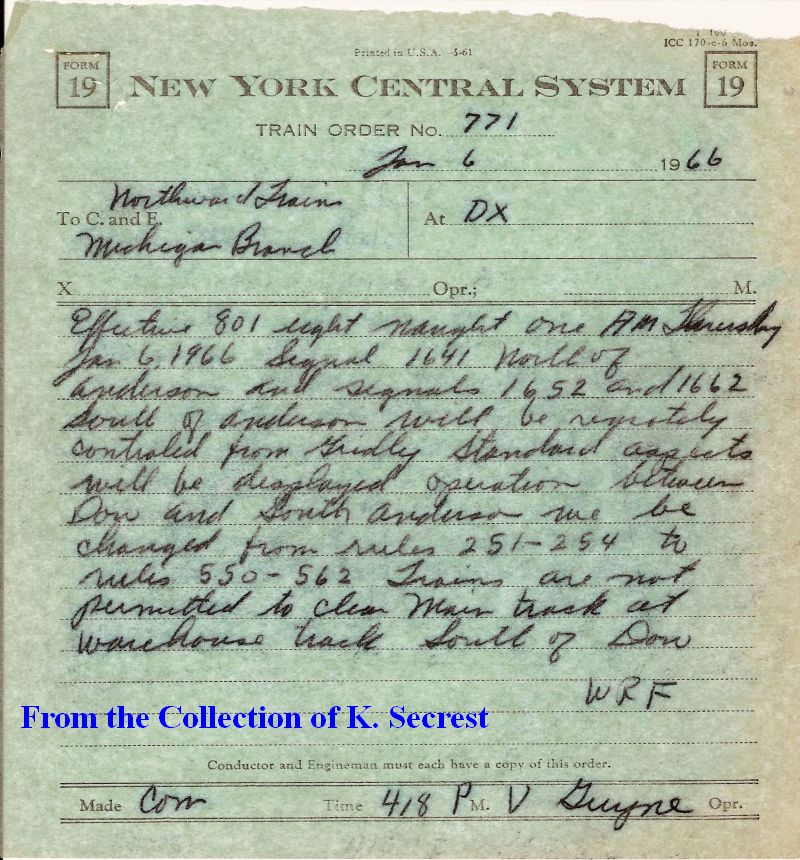 ICC 170-c-6 Mos.
Printed in U.S.A. -5-61
FORM 19
NEW YORK CENTRAL SYSTEM
FORM 19
TRAIN ORDER No. 771
Jan 6 1966
Northward Trains
To C. and E.
Michigan Branch
At DX
X Opr.; M.
Effective 801 eight naught one AM Thursday
Jan 6, 1966 Signal 1641 North of
Anderson and signals 1652 and 1662
South of Anderson will be remotely
controled from Gridly Standard aspects
will be displayed operation between
Dow and South Anderson be
changed from rules 251-254 to
rules 550-562 Trains are not
permitted to clear Main track at
warehouse track South of Dow
WRF
From the Collection of K. Secrest
Conductor and Engineman must each have a copy of this order.
Made Com Time 418 P M. V Guyne Opr.